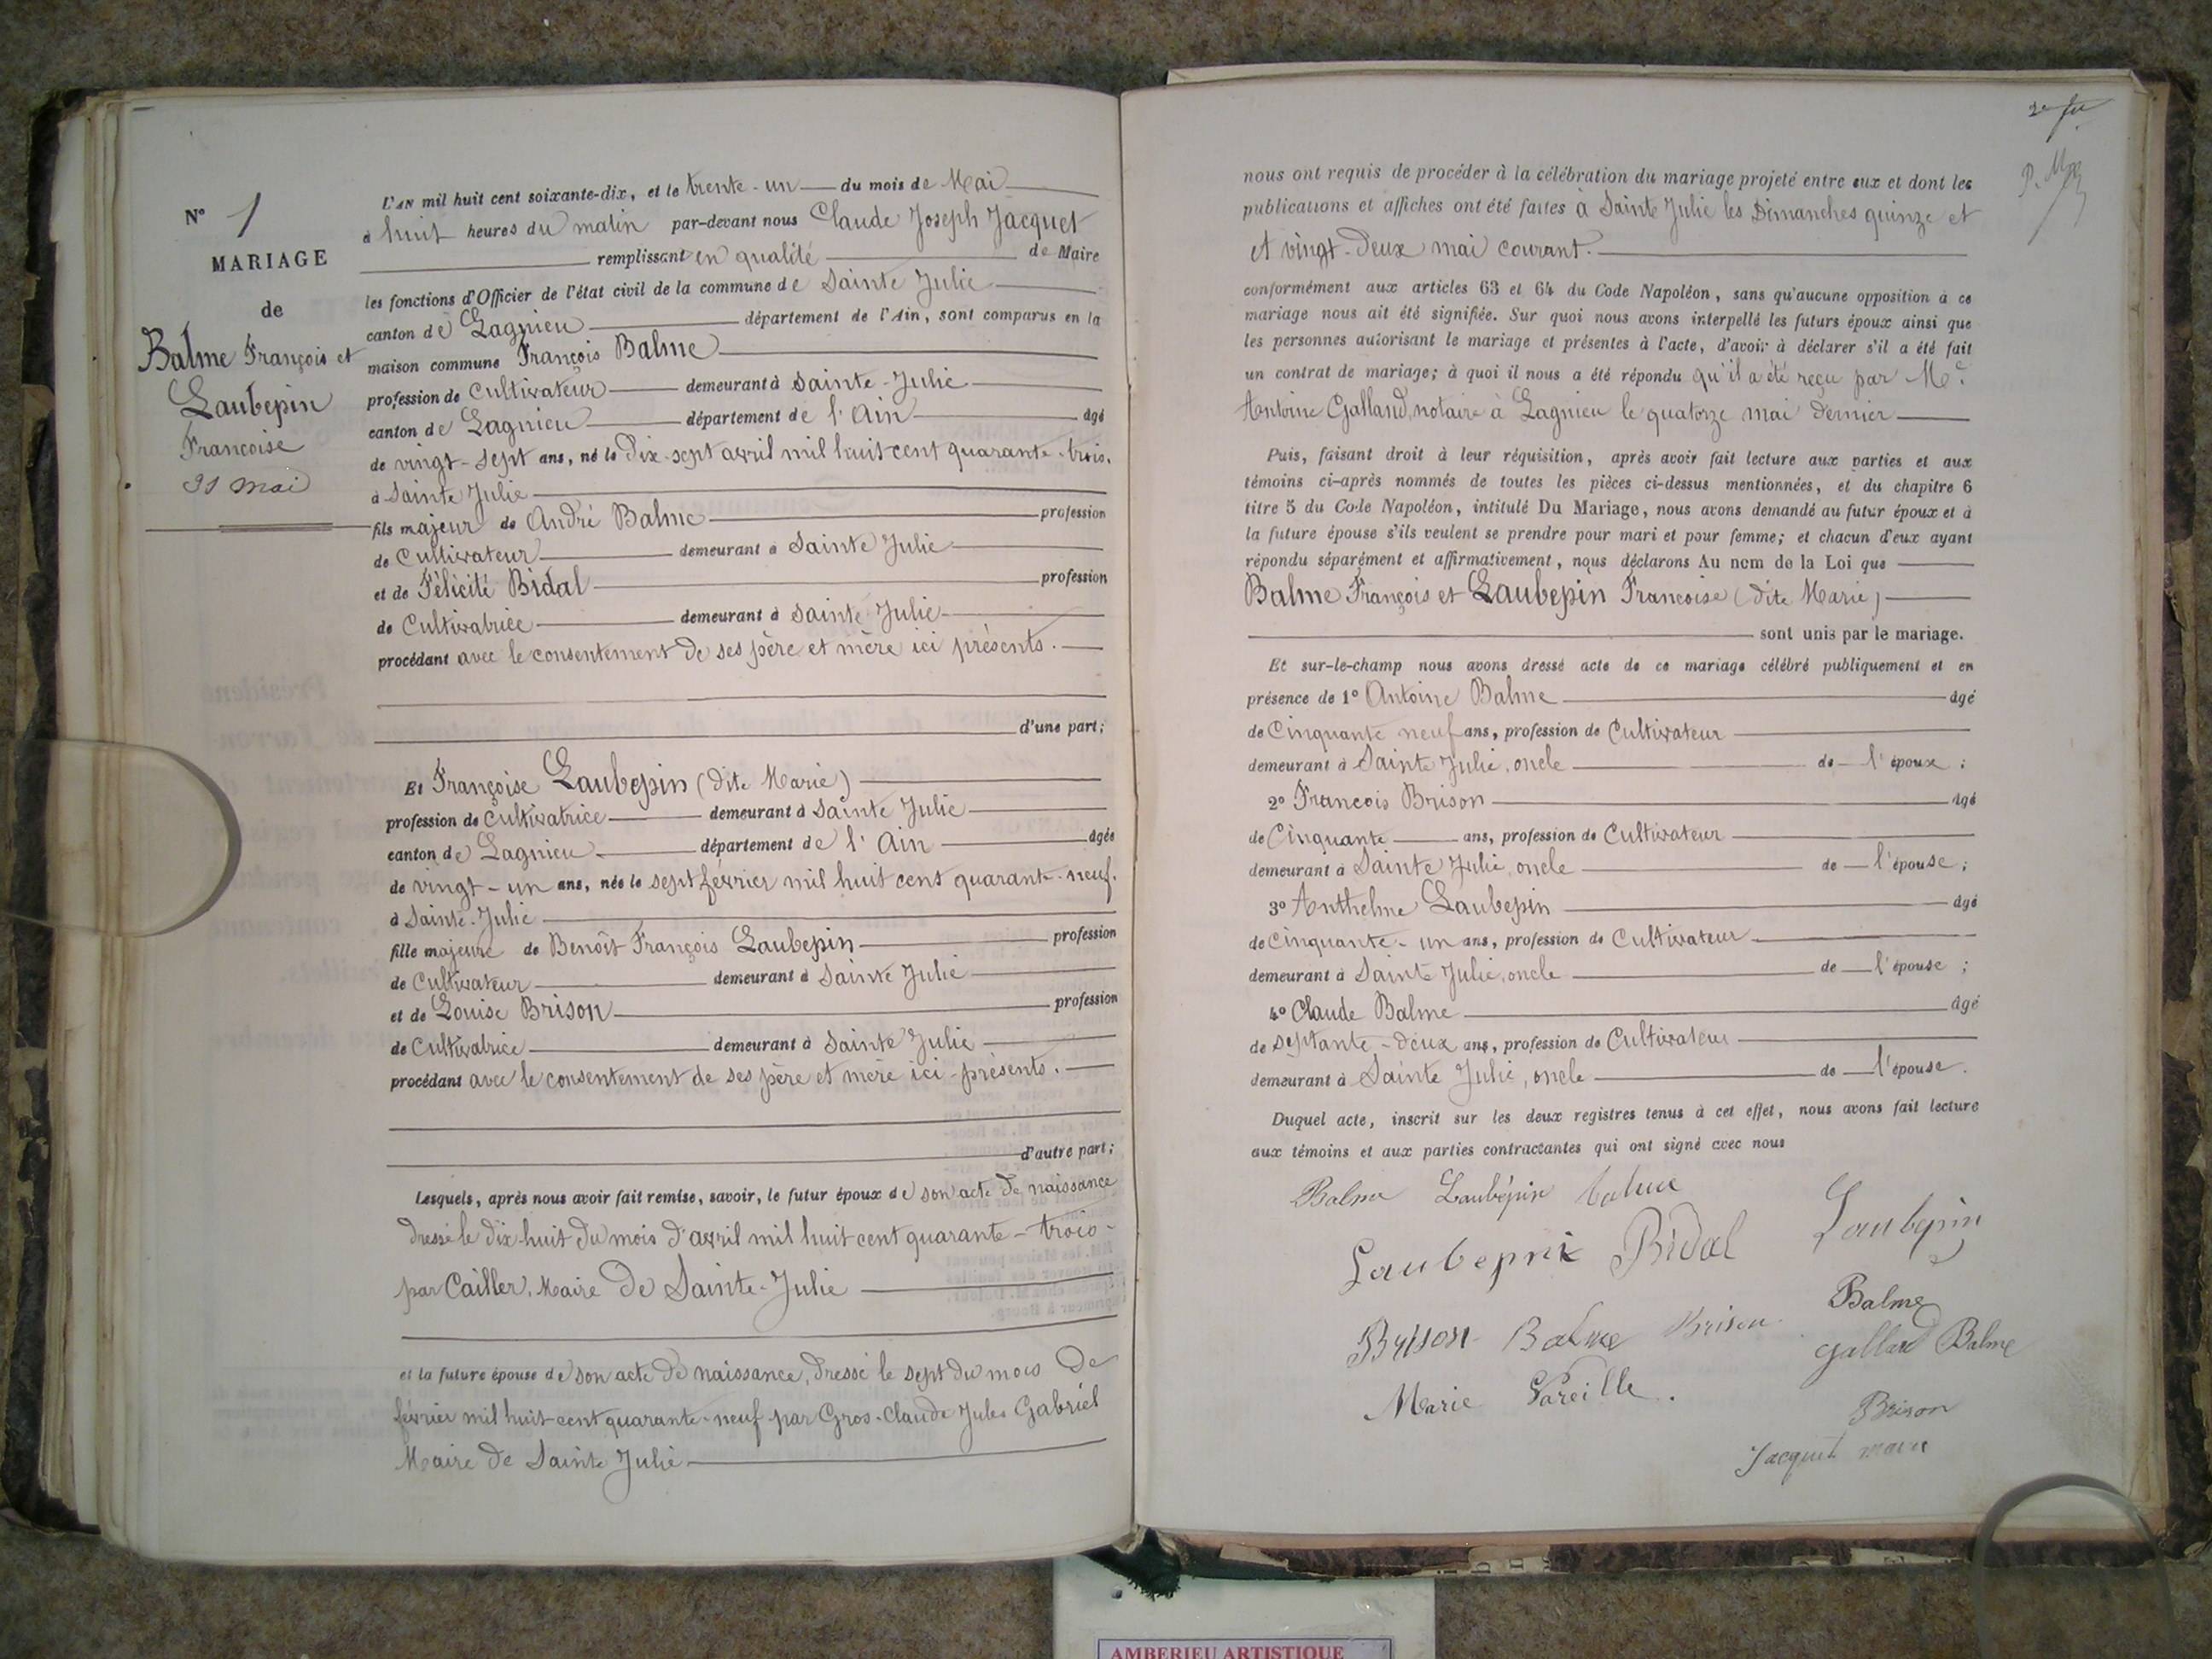 N° 1
MARIAGE
de
Balme François et
Laubepin
Francoise
31 mai
L'AN mil huit cent soixante-dix, et le trente-un du mois de Mai
à huit heures du matin par-devant nous Claude Joseph Jacquet
remplissant en qualité de Maire
les fonctions d'Officier de l'état civil de la commune de Sainte Julie
canton de Lagnieu département de l'Ain, sont comparus en la
maison commune François Balme
profession de Cultivateur demeurant à Sainte-Julie
canton de Lagnieu département de l'Ain âgé
de vingt-sept ans, né le Dix-sept avril mil huit cent quarante-trois.
à Sainte Julie
fils majeur de André Balme profession
de Cultivateur demeurant à Sainte Julie
et de Félicité Bidal profession
de Cultivatrice demeurant à Sainte Julie
procédant avec le consentement de ses père et mère ici présents.
d'une part;
Et Françoise Laubepin (dite Marie)
profession de Cultivatrice demeurant à Sainte Julie
canton de Lagnieu département de l'Ain âgée
de vingt-un ans, née le sept fevrier mil huit cent quarante-neuf.
à Sainte-Julie
fille majeure de Benoît François Laubepin profession
de Cultivateur demeurant à Sainte Julie
et de Louise Brison profession
de Cultivatrice demeurant à Sainte Julie
procédant avec le consentement de ses père et mère ici présents.
d'autre part;
Lesquels, après nous avoir fait remise, savoir, le futur époux de son acte de naissance
dressé le dix-huit du mois d'avril mil huit cent quarante-trois
par Cailler, Maire de Sainte-Julie
et la future épouse de son acte de naissance, dressé le sept du mois de
février mil huit-cent quarante-neuf par Gros-Claude Jules Gabriel
Maire de Sainte Julie
nous ont requis de procéder à la célébration du mariage projeté entre eux et dont les
publications et affiches ont été faites à Sainte Julie les Dimanches quinze et
et vingt-deux mai courant.
conformément aux articles 63 et 64 du Code Napoléon, sans qu'aucune opposition à ce
mariage nous ait été signifiée. Sur quoi nous avons interpellé les futurs époux ainsi que
les personnes autorisant le mariage et présentes à l'acte, d'avoir à déclarer s'il a été fait
un contrat de mariage; à quoi il nous a été répondu qu'il a été reçu par Me
Antoine Galland, notaire à Lagnieu le quatorze mai dernier
Puis, faisant droit à leur réquisition, après avoir fait lecture aux parties et aux
témoins ci-après nommés de toutes les pièces ci-dessus mentionnées, et du chapitre 6
titre 5 du Code Napoléon, intitulé Du Mariage, nous avons demandé au futur époux et à
la future épouse s'ils veulent se prendre pour mari et pour femme; et chacun d'eux ayant
répondu séparément et affirmativement, nous déclarons Au nom de la Loi que
Balme François et Laubepin Francoise (dite Marie)
sont unis par le mariage.
Et sur-le-champ nous avons dressé acte de ce mariage célébré publiquement et en
présence de 1° Antoine Balme âgé
de Cinquante neuf ans, profession de Cultivateur
demeurant à Sainte Julie, oncle de l'époux;
2° Francois Brison âgé
de Cinquante ans, profession de Cultivateur
demeurant à Sainte Julie, oncle de l'épouse;
3° Anthelme Laubepin âgé
de Cinquante-un ans, profession de Cultivateur
demeurant à Sainte Julie, oncle de l'épouse;
4° Claude Balme âgé
de septante-deux ans, profession de Cultivateur
demeurant à Sainte Julie, oncle de l'épouse.
Duquel acte, inscrit sur les deux registres tenus à cet effet, nous avons fait lecture
aux témoins et aux parties contractantes qui ont signé avec nous
Balme Laubépin balme
Laubepin Bidal Laubepin
Balme
Brison Balme Brison
Galland Balme
Marie Vareille.
Brison
Jacquet maire
AMBERIEU ARTISTIQUE